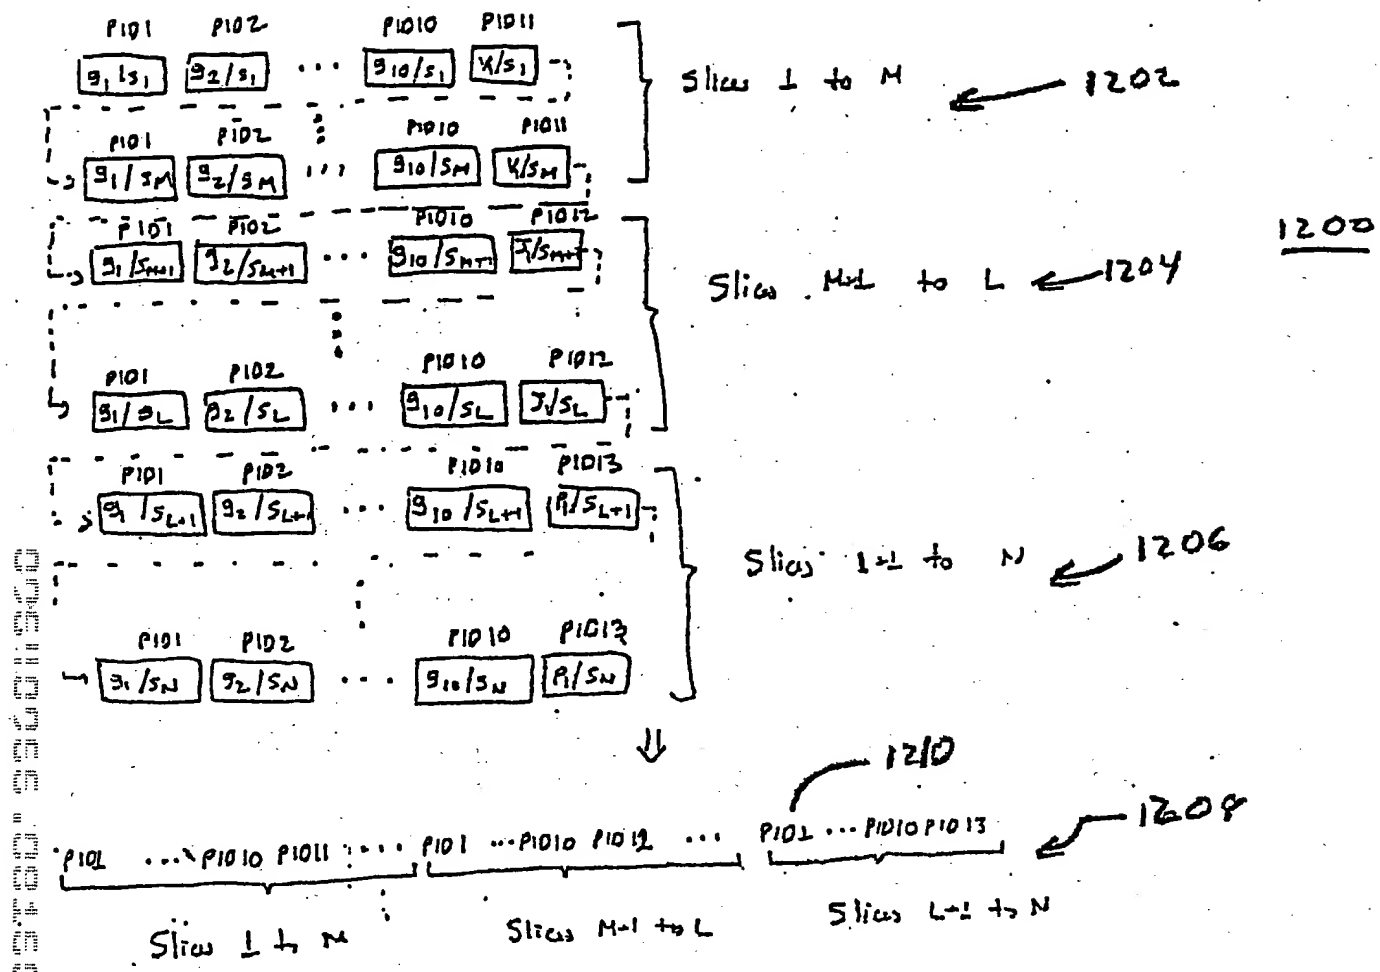 PID1 PID2 PID10 PID11
g1/s1 g2/s1 ... g10/s1 /s1
Slices 1 to M 1202
PID1 PID2 PID10 PID11
g1/sM g2/sM ... g10/sM /sM
PID1 PID2 PID10 PID12
g1/sM+1 g2/sM+1 ... g10/sM+1 /sM+1
Slices M+1 to L 1204
1200
PID1 PID2 PID10 PID12
g1/sL g2/sL ... g10/sL /sL
PID1 PID2 PID10 PID13
g1/sL+1 g2/sL+1 ... g10/sL+1 P1/sL+1
Slices L+1 to N 1206
PID1 PID2 PID10 PID13
g1/sN g2/sN ... g10/sN P1/sN
⇓
1210
1208
PID1 ... PID10 PID11 ... PID1 ... PID10 PID12 ... PID1 ... PID10 PID13
Slices 1 to M Slices M+1 to L Slices L+1 to N